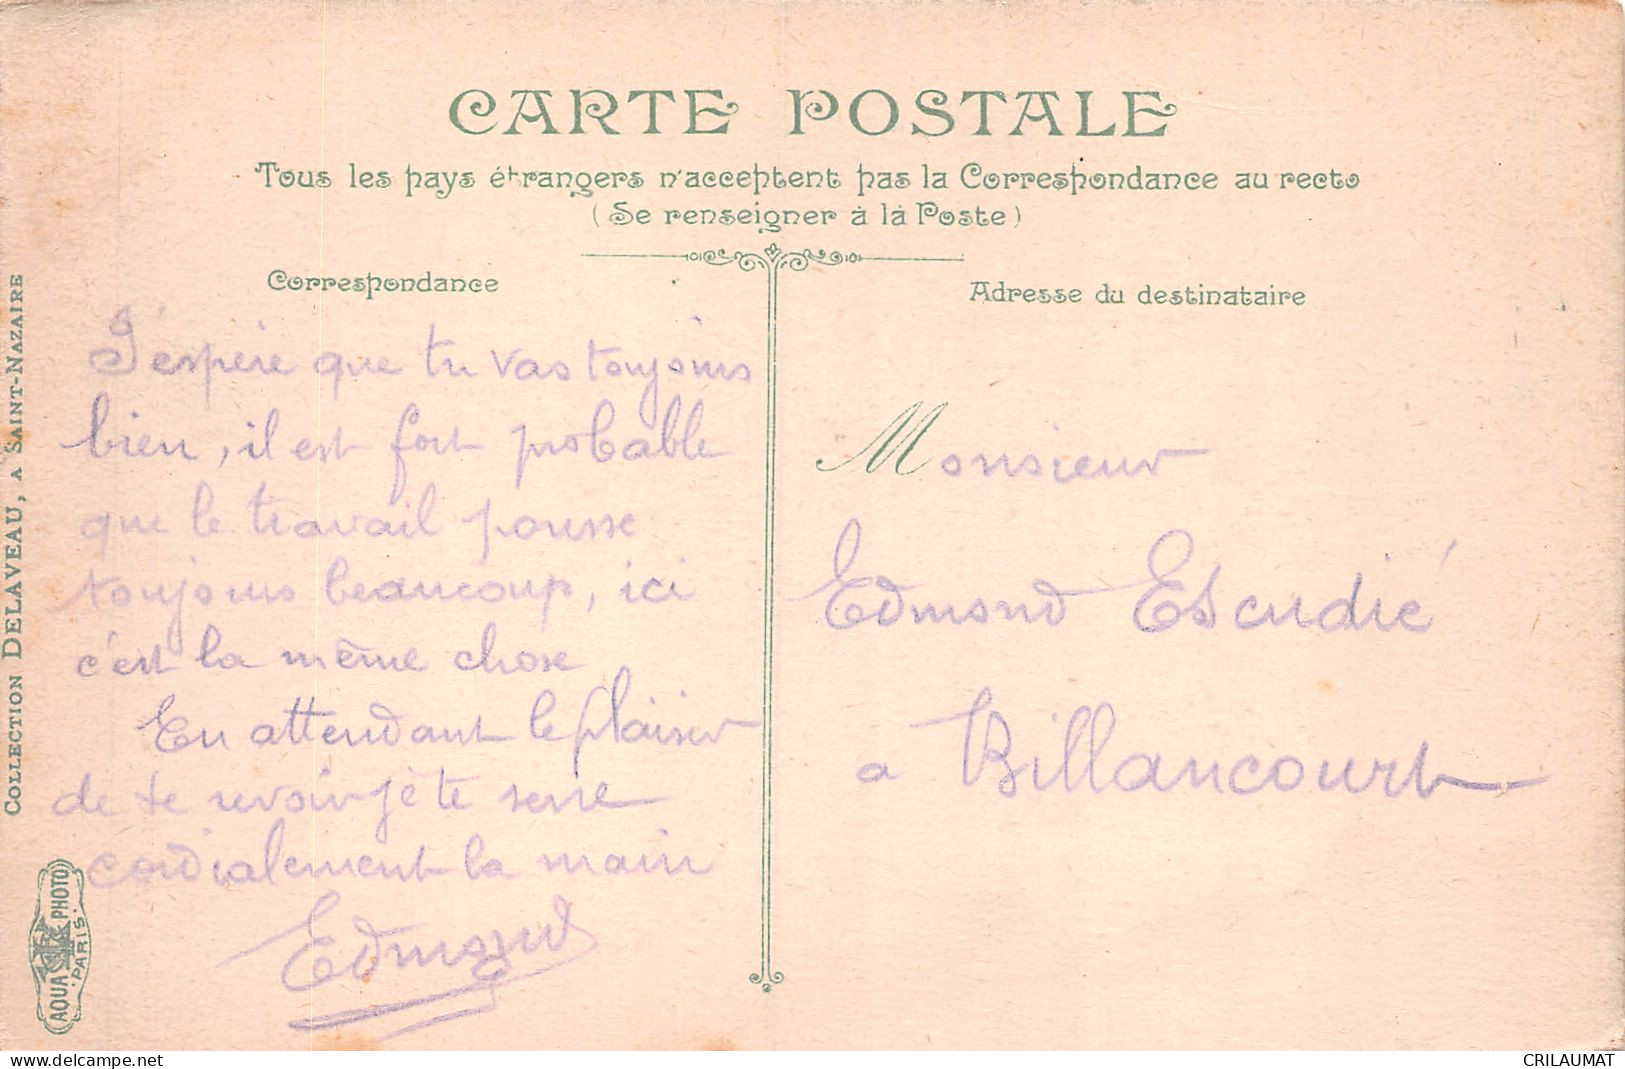 CARTE POSTALE
Tous les pays étrangers n'acceptent pas la Correspondance au recto
(Se renseigner à la Poste)
Correspondance
J'espère que tu vas toujours
bien, il est fort probable
que le travail pousse
toujours beaucoup, ici
c'est la même chose
En attendant le plaisir
de te revoir je te serre
cordialement la main
Edmond
Adresse du destinataire
Monsieur
Edmond Escudié
a Billancourt
COLLECTION DELAVEAU, A SAINT-NAZAIRE
AQUA PHOTO
PARIS
delcampe.net
CRILAUMAT